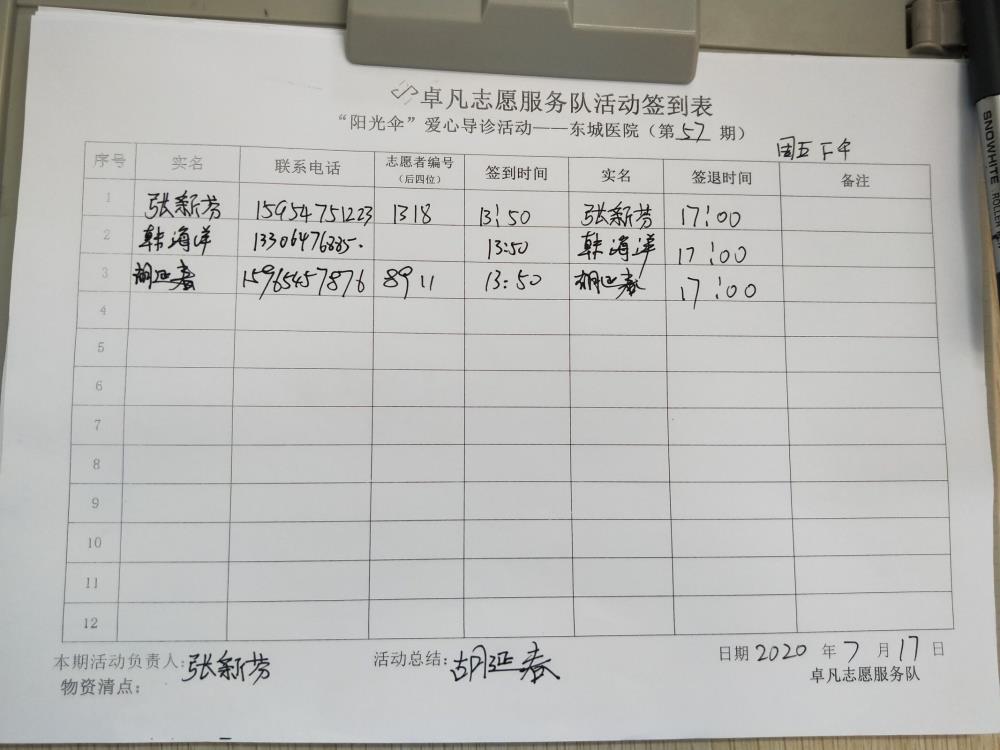 卓凡志愿服务队活动签到表
“阳光伞”爱心导诊活动——东城医院（第57期）
周五下午
序号 实名 联系电话 志愿者编号（后四位） 签到时间 实名 签退时间 备注
1 张新芳 15954751223 1318 13:50 张新芳 17:00
2 韩海洋 13:50 韩海洋 17:00
3 胡延春 15965457876 8911 13:50 胡延春 17:00
4
5
6
7
8
9
10
11
12
本期活动负责人:张新芳 活动总结:胡延春 日期2020年7月17日
物资清点: 卓凡志愿服务队
SNOWHITE